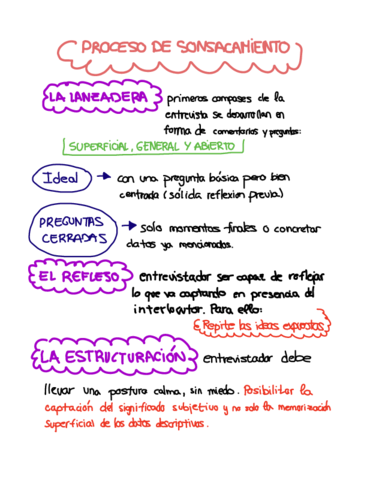 PROCESO DE SONSACAMIENTO
LA LANZADERA
primeros compases de la
entrevista se desarrollan en
forma de comentarios y preguntas:
SUPERFICIAL, GENERAL Y ABIERTO
Ideal
con una pregunta básica pero bien
centrada (sólida reflexion previa)
PREGUNTAS
CERRADAS
solo momentos finales o concretar
datos ya mencionados.
EL REFLEJO
entrevistador ser capaz de reflejar
lo que va captando en presencia del
interlocutor. Para ello:
Repite las ideas expuestas
LA ESTRUCTURACIÓN
entrevistador debe
llevar una postura calma, sin miedo. Posibilitar la
captación del significado subjetivo y no solo la memorización
superficial de los datos descriptivos.